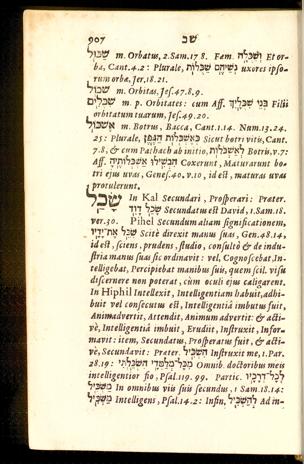 907 שכ
שכול m. Orbatus, 2. Sam. 17 8. Fœm. ושכלה Et or-
ba, Cant. 4. 2 : Plurale, נשיהם שכלות uxores ipso-
rum orbæ, Jer. 18. 21.
שכול m. Orbitas, Jes. 47. 8. 9.
שכלים m. p. Orbitates : cum Aff. בני שכליך Filii
orbitatum tuarum, Jes. 49. 20.
אשכול m. Botrus, Bacca, Cant. 1. 14. Num. 13. 24.
25 : Plurale, כאשכלות הגפן Sicut botri vitis, Cant.
7. 8, & cum Pathach ab initio, לאשכלות Botris, v. 7:
Aff. הבשילו אשכלותיה Coxerunt, Maturarunt bo-
tri ejus uvas, Genes. 40. v. 10, id est, maturas uvas
protulerunt.
שכל In Kal Secundari, Prosperari : Præter.
שכל דוד Secundatus est David, 1. Sam. 18.
ver. 30. Pihel Secundum aliam significationem,
שכל את ידיו Scitè direxit manus suas, Gen. 48. 14,
id est, sciens, prudens, studio, consultò & de indu-
stria manus suas sic ordinavit : vel, Cognoscebat, In-
telligebat, Percipiebat manibus suis, quem scil. visu
discernere non poterat, cùm oculi ejus caligarent.
In Hiphil Intellexit, Intelligentiam habuit, adhi-
buit vel consecutus est, Intelligentiâ imbutus fuit,
Animadvertit, Attendit, Animum advertit : & acti-
vè, Intelligentiâ imbuit, Erudiit, Instruxit, Infor-
mavit : item, Secundatus, Prosperatus fuit, & acti-
vè, Secundavit : Præter. השכיל Instruxit me, 1. Par.
28. 19 : מכל מלמדי השכלתי Omnib. doctoribus meis
intelligentior fio, Psal. 119. 99. Partic. לכל דרכיו
משכיל In omnibus viis suis secundus, 1 Sam. 18. 14 :
משכיל Intelligens, Psal. 14. 2 : Infin. להשכיל Ad in-